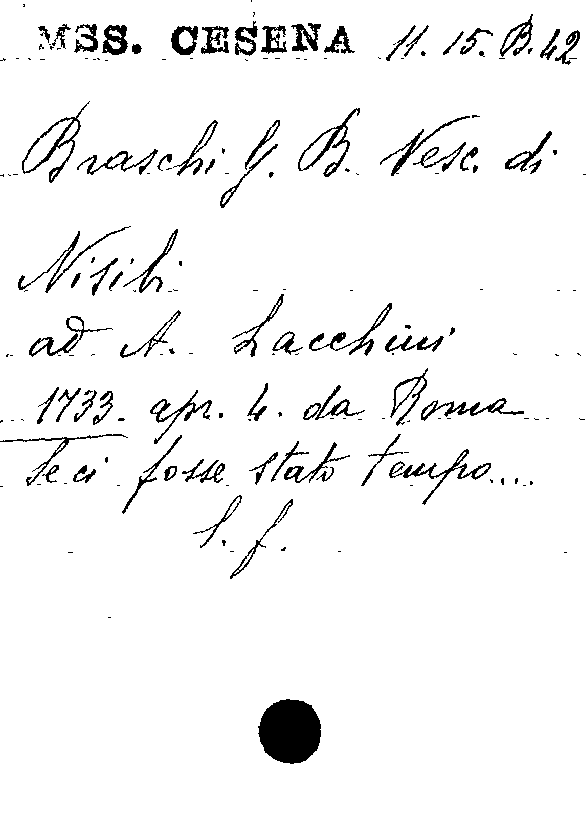 MSS. CESENA 11. 15. B. 42
Braschi G. B. Vesc. di
Nisibi
ad A. Lacchini
1733. apr. 4. da Roma
Se ci fosse stato tempo....
l. f.